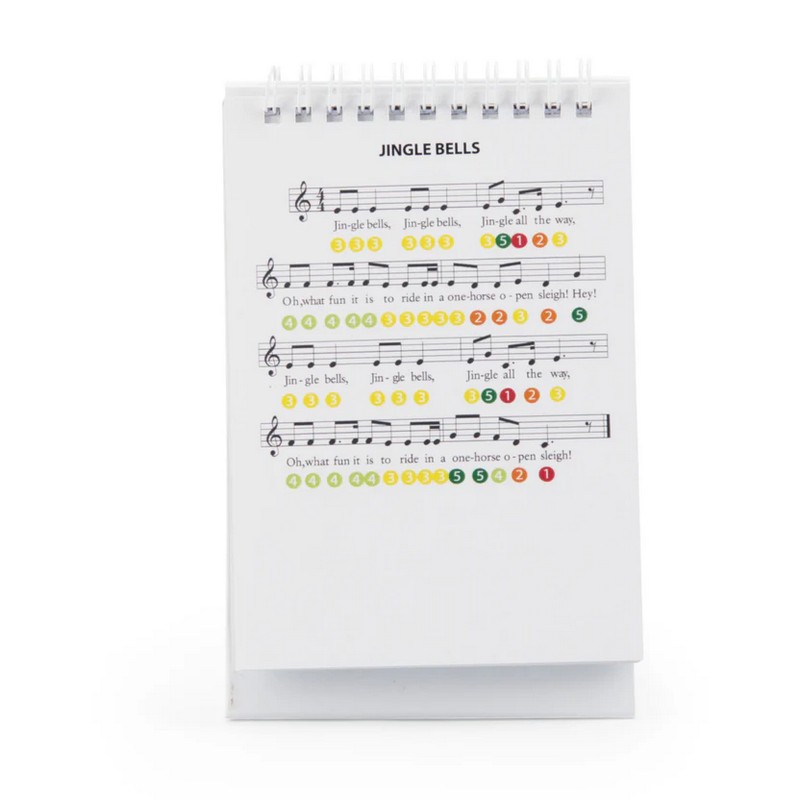 JINGLE BELLS
4 4
Jin-gle bells, Jin-gle bells, Jin-gle all the way,
3 3 3 3 3 3 3 5 1 2 3
Oh,what fun it is to ride in a one-horse o-pen sleigh! Hey!
4 4 4 4 4 3 3 3 3 3 2 2 3 2 5
Jin-gle bells, Jin-gle bells, Jin-gle all the way,
3 3 3 3 3 3 3 5 1 2 3
Oh,what fun it is to ride in a one-horse o-pen sleigh!
4 4 4 4 4 3 3 3 3 5 5 4 2 1